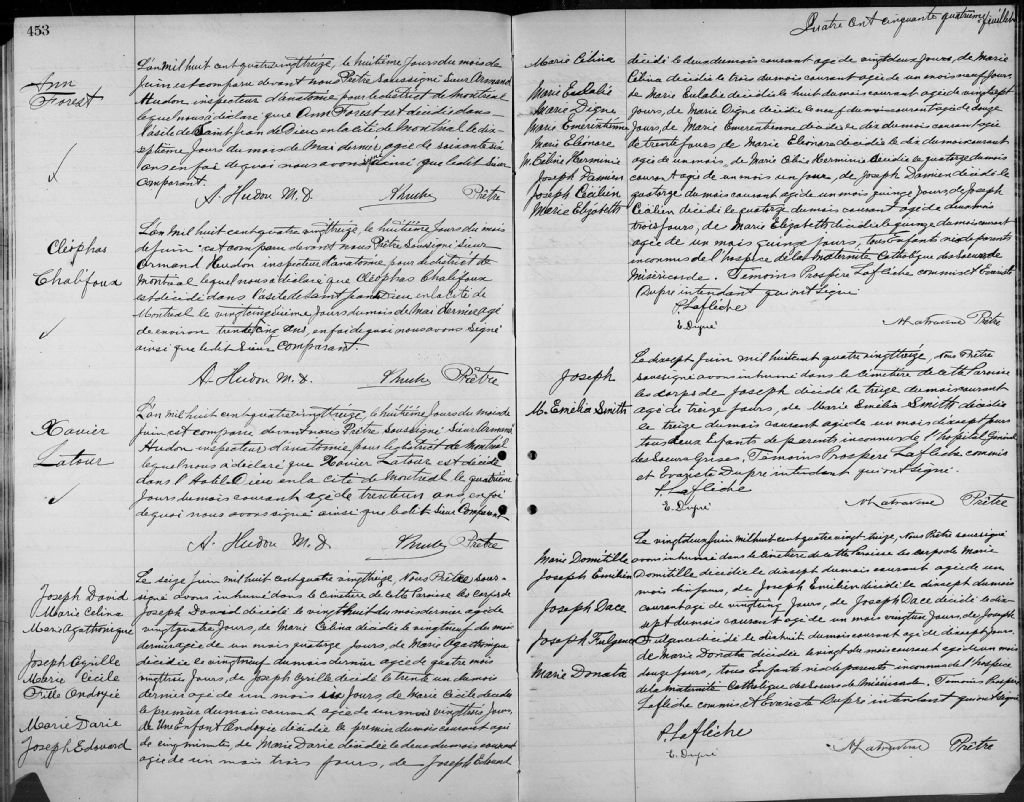 453
Ann
Forest
L'an mil huit cent quatre vingt treize, le huitième jours du mois de
Juin est comparu devant nous Prêtre soussigné Sieur Armand
Hudon inspecteur d'anatomie pour le district de Montréal
lequel nous a déclaré que Ann Forest est décédé dans
l'asile de Saint Jean de Dieu en la cité de Montréal le dix
septième jours du mois de Mai dernier agée de soixante six
ans en foi de quoi nous avons signé ainsi que ledit Sieur
Comparant.
A. Hudon M.D. Prêtre
Cléophas
Chalifoux
L'an mil huit cent quatre vingt treize, le huitième jours du mois
de Juin est comparu devant nous Prêtre Soussigné Sieur
Armand Hudon inspecteur d'anatomie pour le district de
Montréal lequel nous a déclaré que Cléophas Chalifoux
est décédé dans l'asile de Saint Jean de Dieu en la cité de
Montreal le vingt cinquième jours du mois de Mai dernier agé
de environ trente cinq ans, en foi de quoi nous avons signé
ainsi que ledit Sieur Comparant.
A. Hudon M.D. Prêtre
Xavier
Latour
L'an mil huit cent quatre vingt treize, le huitième jours du mois de
Juin est comparu devant nous Prêtre soussigné Sieur Armand
Hudon inspecteur d'anatomie pour le district de Montréal
lequel nous a déclaré que Xavier Latour est décédé
dans l'Hotel Dieu en la cité de Montréal le quatrième
jours du mois courant agé de trente un ans en foi
de quoi nous avons signé ainsi que ledit Sieur Comparant
A. Hudon M.D. Prêtre
Joseph David
Marie Celina
Marie Agathonique
Joseph Cyrille
Marie Cecile
Fille Ondoyée
Marie Darie
Joseph Edouard
Le seize Juin mil huit cent quatre vingt treize Nous Prêtre sous-
signé avons inhumé dans le cimetière de cette Paroisse les corps de
Joseph David décédé le vingt huit du mois dernier agé de
vingt quatre Jours, de Marie Célina décédée le vingt neuf du mois
dernier agée de un mois quatorze jours, de Marie Agathonique
décédée le vingt neuf du mois dernier agée de quatre mois
vingt trois Jours, de Joseph Cyrille décédé le trente un du mois
dernier agé de un mois six Jours de Marie Cécile décédée
le premier du mois courant agée de un mois vingt trois Jours,
de Une Enfant Ondoyée décédée le premier du mois courant agée
de cinq minutes, de Marie Darie décédée le deux du mois courant
agée de un mois trois jours, de Joseph Edouard
Quatre cent cinquante quatrième feuillet
Marie Célina
Marie Eulalie
Marie Digne
Marie Emerentienne
Marie Eléonore
M. Céline Herminie
Joseph Damien
Joseph Cécilien
Marie Elizabeth
décédé le deux du mois courant agé de vingt deux jours, de Marie
Célina décédée le trois du mois courant agée de un mois neuf jours,
de Marie Eulalie décédée le huit du mois courant agée de vingt sept
jours, de Marie Digne décédée le neuf du mois courant agée de douze
jours, de Marie Emerentienne décédée le dix du mois courant agée
de trente jours, de Marie Eléonore décédée le dix du mois courant
agée de un mois, de Marie Céline Herminie décédée le quatorze du mois
courant agée de un mois un jour, de Joseph Damien décédé le
quatorze du mois courant agé de un mois quinze jours, de Joseph
Cécilien décédé le quatorze du mois courant agé de un mois
trois jours, de Marie Elizabeth décédée le quinze du mois courant
agée de un mois quinze jours, tous Enfants nés de parents
inconnus de l'hospice de la Maternité Catholique des Soeurs de
Miséricorde. Témoins Prospère Laflèche commis et Evariste
Dupré intendant qui ont signé
P. Laflèche
E. Dupré Prêtre
Joseph
M. Emélia Smith
Le dix sept Juin mil huit cent quatre vingt treize, Nous Prêtre
soussigné avons inhumé dans le cimetière de cette Paroisse
les corps de Joseph décédé le treize du mois courant
agé de treize jours, de Marie Emélia Smith décédée
le treize du mois courant agée de un mois dix sept jours
tous deux Enfants de parents inconnus de l'hopital Général
des Soeurs Grises. Témoins Prospère Laflèche commis
et Evariste Dupré intendant qui ont signé.
P. Laflèche
E. Dupré Prêtre
Marie Domitille
Joseph Emilien
Joseph Dace
Joseph Fulgence
Marie Donata
Le vingt deux Juin mil huit cent quatre vingt treize, Nous Prêtre soussigné
avons inhumé dans le cimetière de cette Paroisse les corps de Marie
Domitille décédée le dix sept du mois courant agée de un
mois dix jours, de Joseph Emilien décédé le dix sept du mois
courant agé de vingt cinq Jours, de Joseph Dace décédé le dix-
sept du mois courant agé de un mois vingt un jours, de Joseph
Fulgence décédé le dix huit du mois courant agé de dix sept Jours,
de Marie Donata décédée le vingt du mois courant agée de un mois
douze jours, tous Enfants nés de parents inconnus de l'hospice
de la maternité Catholique des Soeurs de Miséricorde, Témoins Prospère
Laflèche commis et Evariste Dupré intendant qui ont signé
P. Laflèche
E. Dupré Prêtre